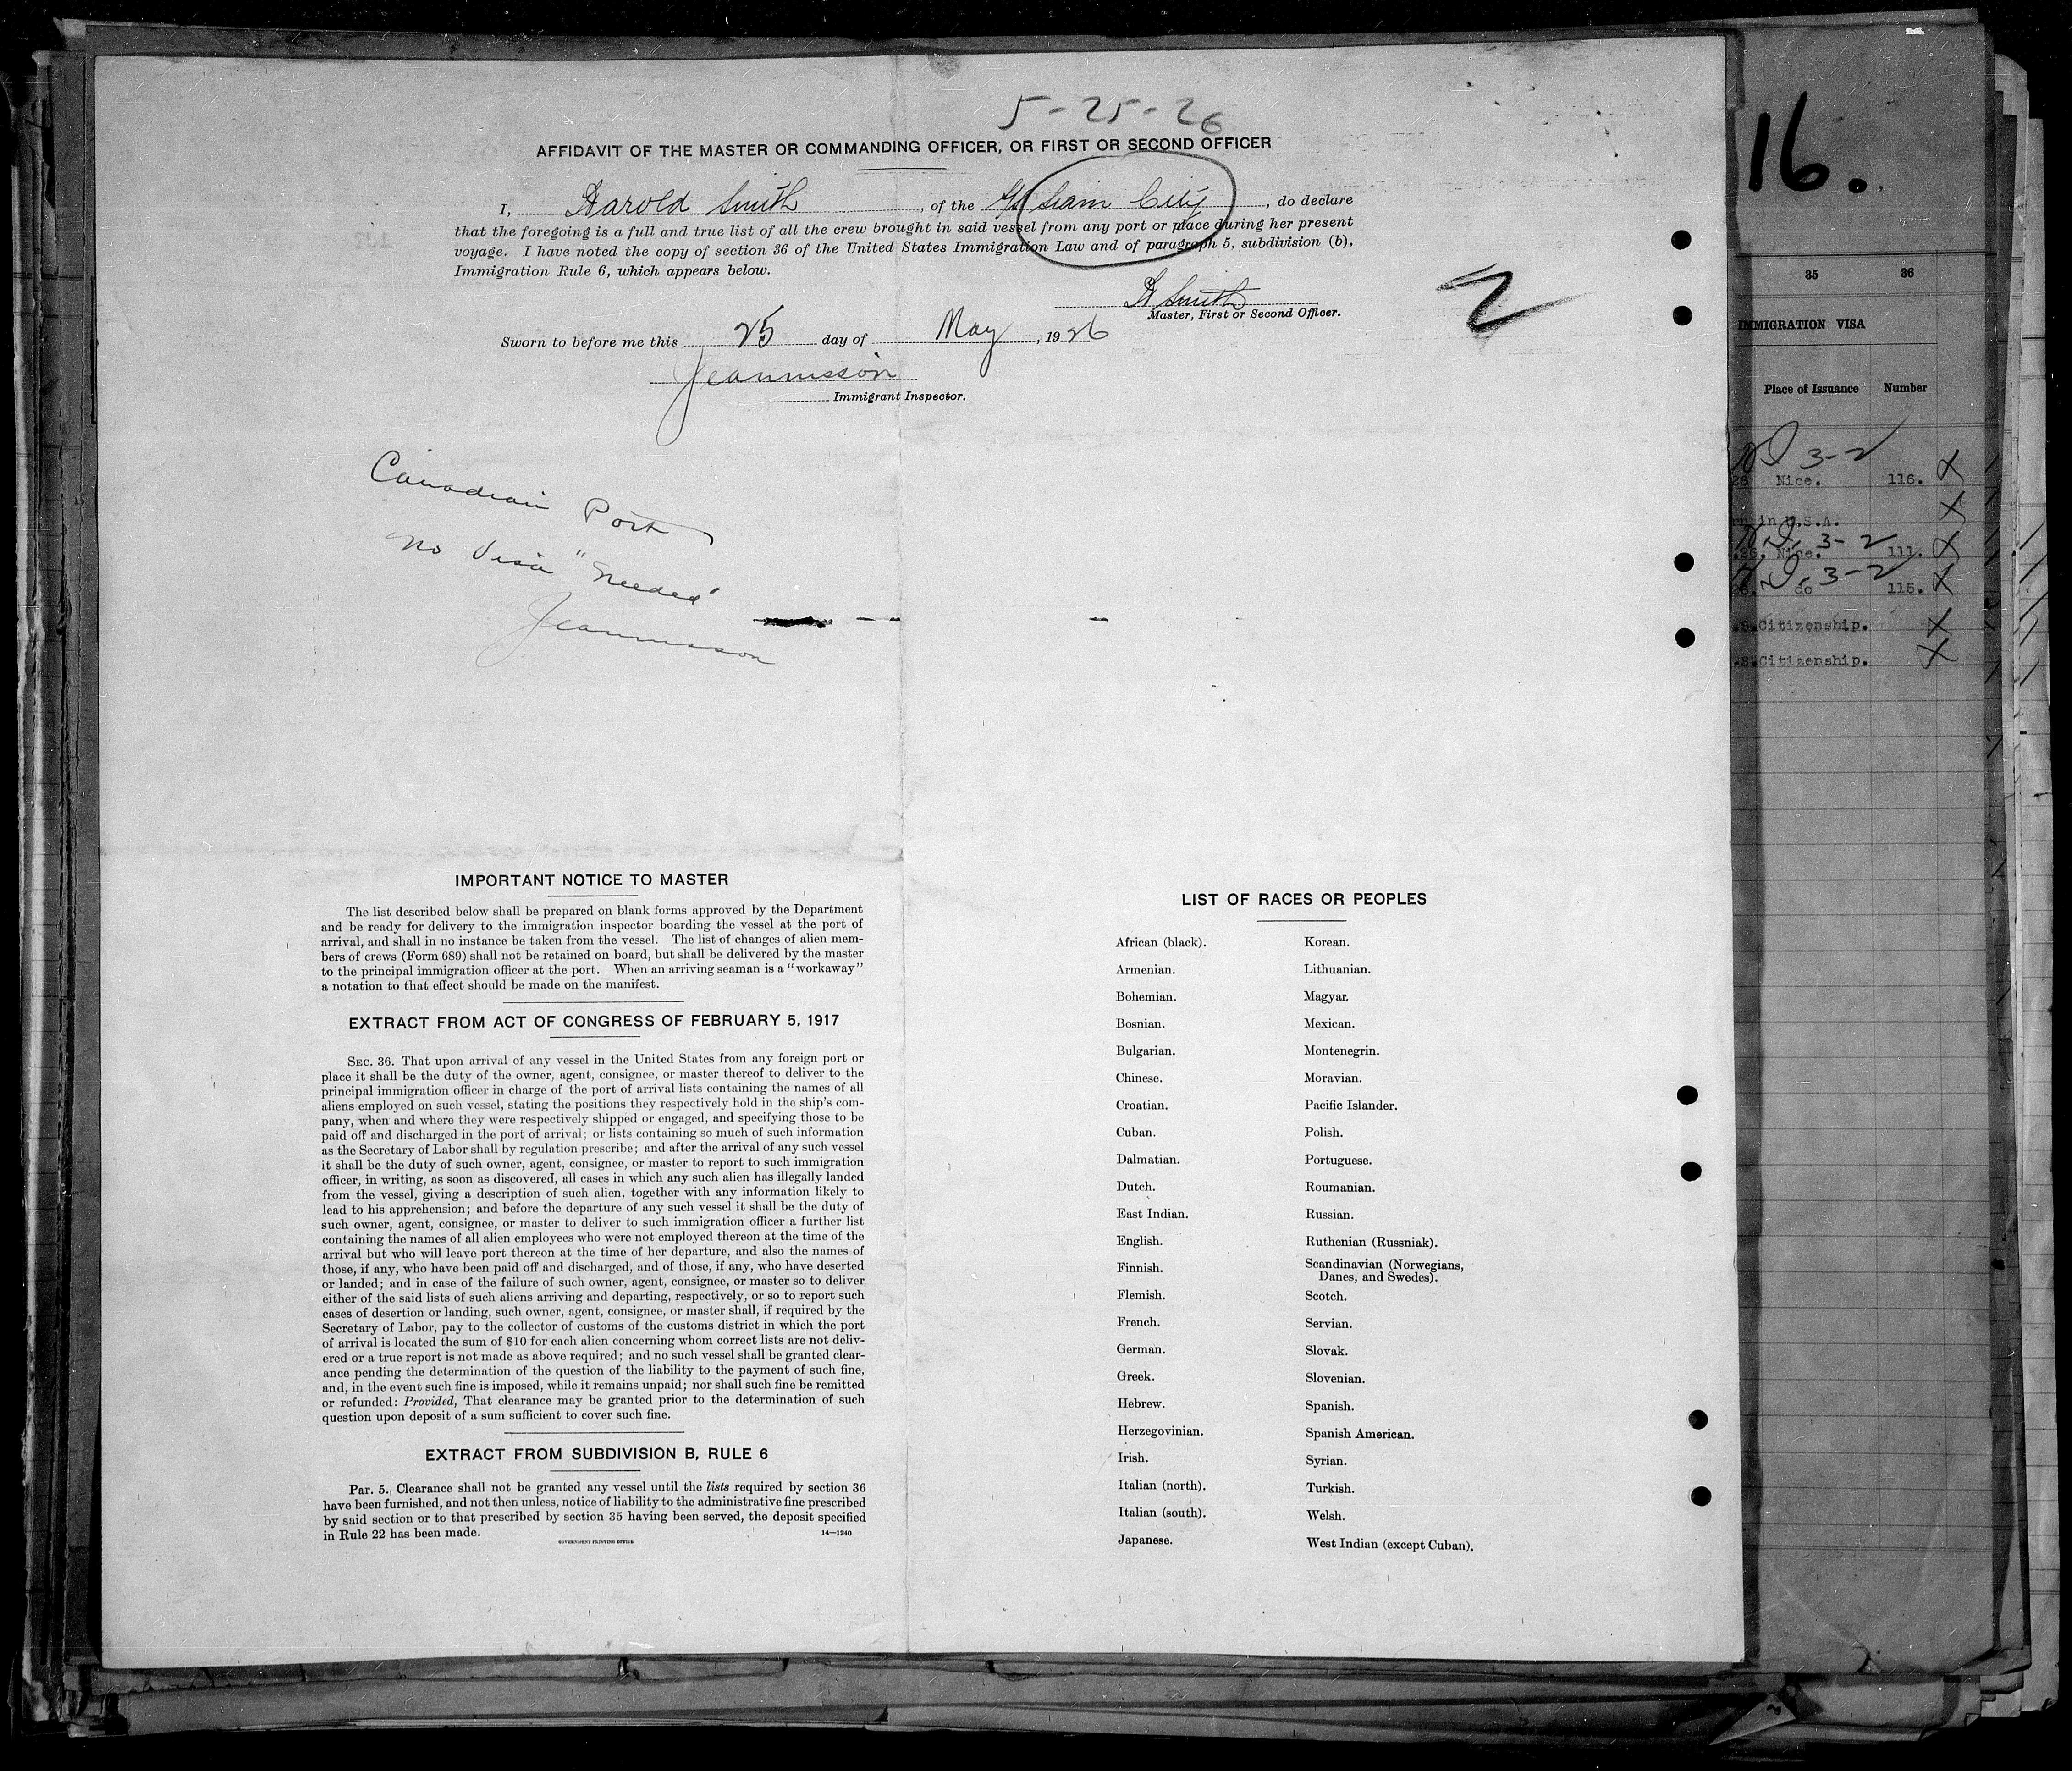 5-25-26
AFFIDAVIT OF THE MASTER OR COMMANDING OFFICER, OR FIRST OR SECOND OFFICER
I, Harold Smith, of the S/S Siam City, do declare
that the foregoing is a full and true list of all the crew brought in said vessel from any port or place during her present
voyage. I have noted the copy of section 36 of the United States Immigration Law and of paragraph 5, subdivision (b),
Immigration Rule 6, which appears below.
H Smith
Master, First or Second Officer.
2
Sworn to before me this 25 day of May, 1926
Immigrant Inspector.
Canadian Port
no Visa "needed"
IMPORTANT NOTICE TO MASTER
The list described below shall be prepared on blank forms approved by the Department
and be ready for delivery to the immigration inspector boarding the vessel at the port of
arrival, and shall in no instance be taken from the vessel. The list of changes of alien mem-
bers of crews (Form 689) shall not be retained on board, but shall be delivered by the master
to the principal immigration officer at the port. When an arriving seaman is a "workaway"
a notation to that effect should be made on the manifest.
EXTRACT FROM ACT OF CONGRESS OF FEBRUARY 5, 1917
SEC. 36. That upon arrival of any vessel in the United States from any foreign port or
place it shall be the duty of the owner, agent, consignee, or master thereof to deliver to the
principal immigration officer in charge of the port of arrival lists containing the names of all
aliens employed on such vessel, stating the positions they respectively hold in the ship's com-
pany, when and where they were respectively shipped or engaged, and specifying those to be
paid off and discharged in the port of arrival; or lists containing so much of such information
as the Secretary of Labor shall by regulation prescribe; and after the arrival of any such vessel
it shall be the duty of such owner, agent, consignee, or master to report to such immigration
officer, in writing, as soon as discovered, all cases in which any such alien has illegally landed
from the vessel, giving a description of such alien, together with any information likely to
lead to his apprehension; and before the departure of any such vessel it shall be the duty of
such owner, agent, consignee, or master to deliver to such immigration officer a further list
containing the names of all alien employees who were not employed thereon at the time of the
arrival but who will leave port thereon at the time of her departure, and also the names of
those, if any, who have been paid off and discharged, and of those, if any, who have deserted
or landed; and in case of the failure of such owner, agent, consignee, or master so to deliver
either of the said lists of such aliens arriving and departing, respectively, or so to report such
cases of desertion or landing, such owner, agent, consignee, or master shall, if required by the
Secretary of Labor, pay to the collector of customs of the customs district in which the port
of arrival is located the sum of $10 for each alien concerning whom correct lists are not deliv-
ered or a true report is not made as above required; and no such vessel shall be granted clear-
ance pending the determination of the question of the liability to the payment of such fine,
and, in the event such fine is imposed, while it remains unpaid; nor shall such fine be remitted
or refunded: Provided, That clearance may be granted prior to the determination of such
question upon deposit of a sum sufficient to cover such fine.
EXTRACT FROM SUBDIVISION B, RULE 6
Par. 5. Clearance shall not be granted any vessel until the lists required by section 36
have been furnished, and not then unless, notice of liability to the administrative fine prescribed
by said section or to that prescribed by section 35 having been served, the deposit specified
in Rule 22 has been made. 14-1240
GOVERNMENT PRINTING OFFICE
LIST OF RACES OR PEOPLES
African (black). Korean.
Armenian. Lithuanian.
Bohemian. Magyar.
Bosnian. Mexican.
Bulgarian. Montenegrin.
Chinese. Moravian.
Croatian. Pacific Islander.
Cuban. Polish.
Dalmatian. Portuguese.
Dutch. Roumanian.
East Indian. Russian.
English. Ruthenian (Russniak).
Finnish. Scandinavian (Norwegians,
Danes, and Swedes).
Flemish. Scotch.
French. Servian.
German. Slovak.
Greek. Slovenian.
Hebrew. Spanish.
Herzegovinian. Spanish American.
Irish. Syrian.
Italian (north). Turkish.
Italian (south). Welsh.
Japanese. West Indian (except Cuban).
16.
35 36
IMMIGRATION VISA
Place of Issuance Number
3-2
26 Nice. 116. X
in U.S.A. X
3-2
26, Nice. 111. X
3-2
do 115. X
.S.Citizenship. X
.S.Citizenship. X